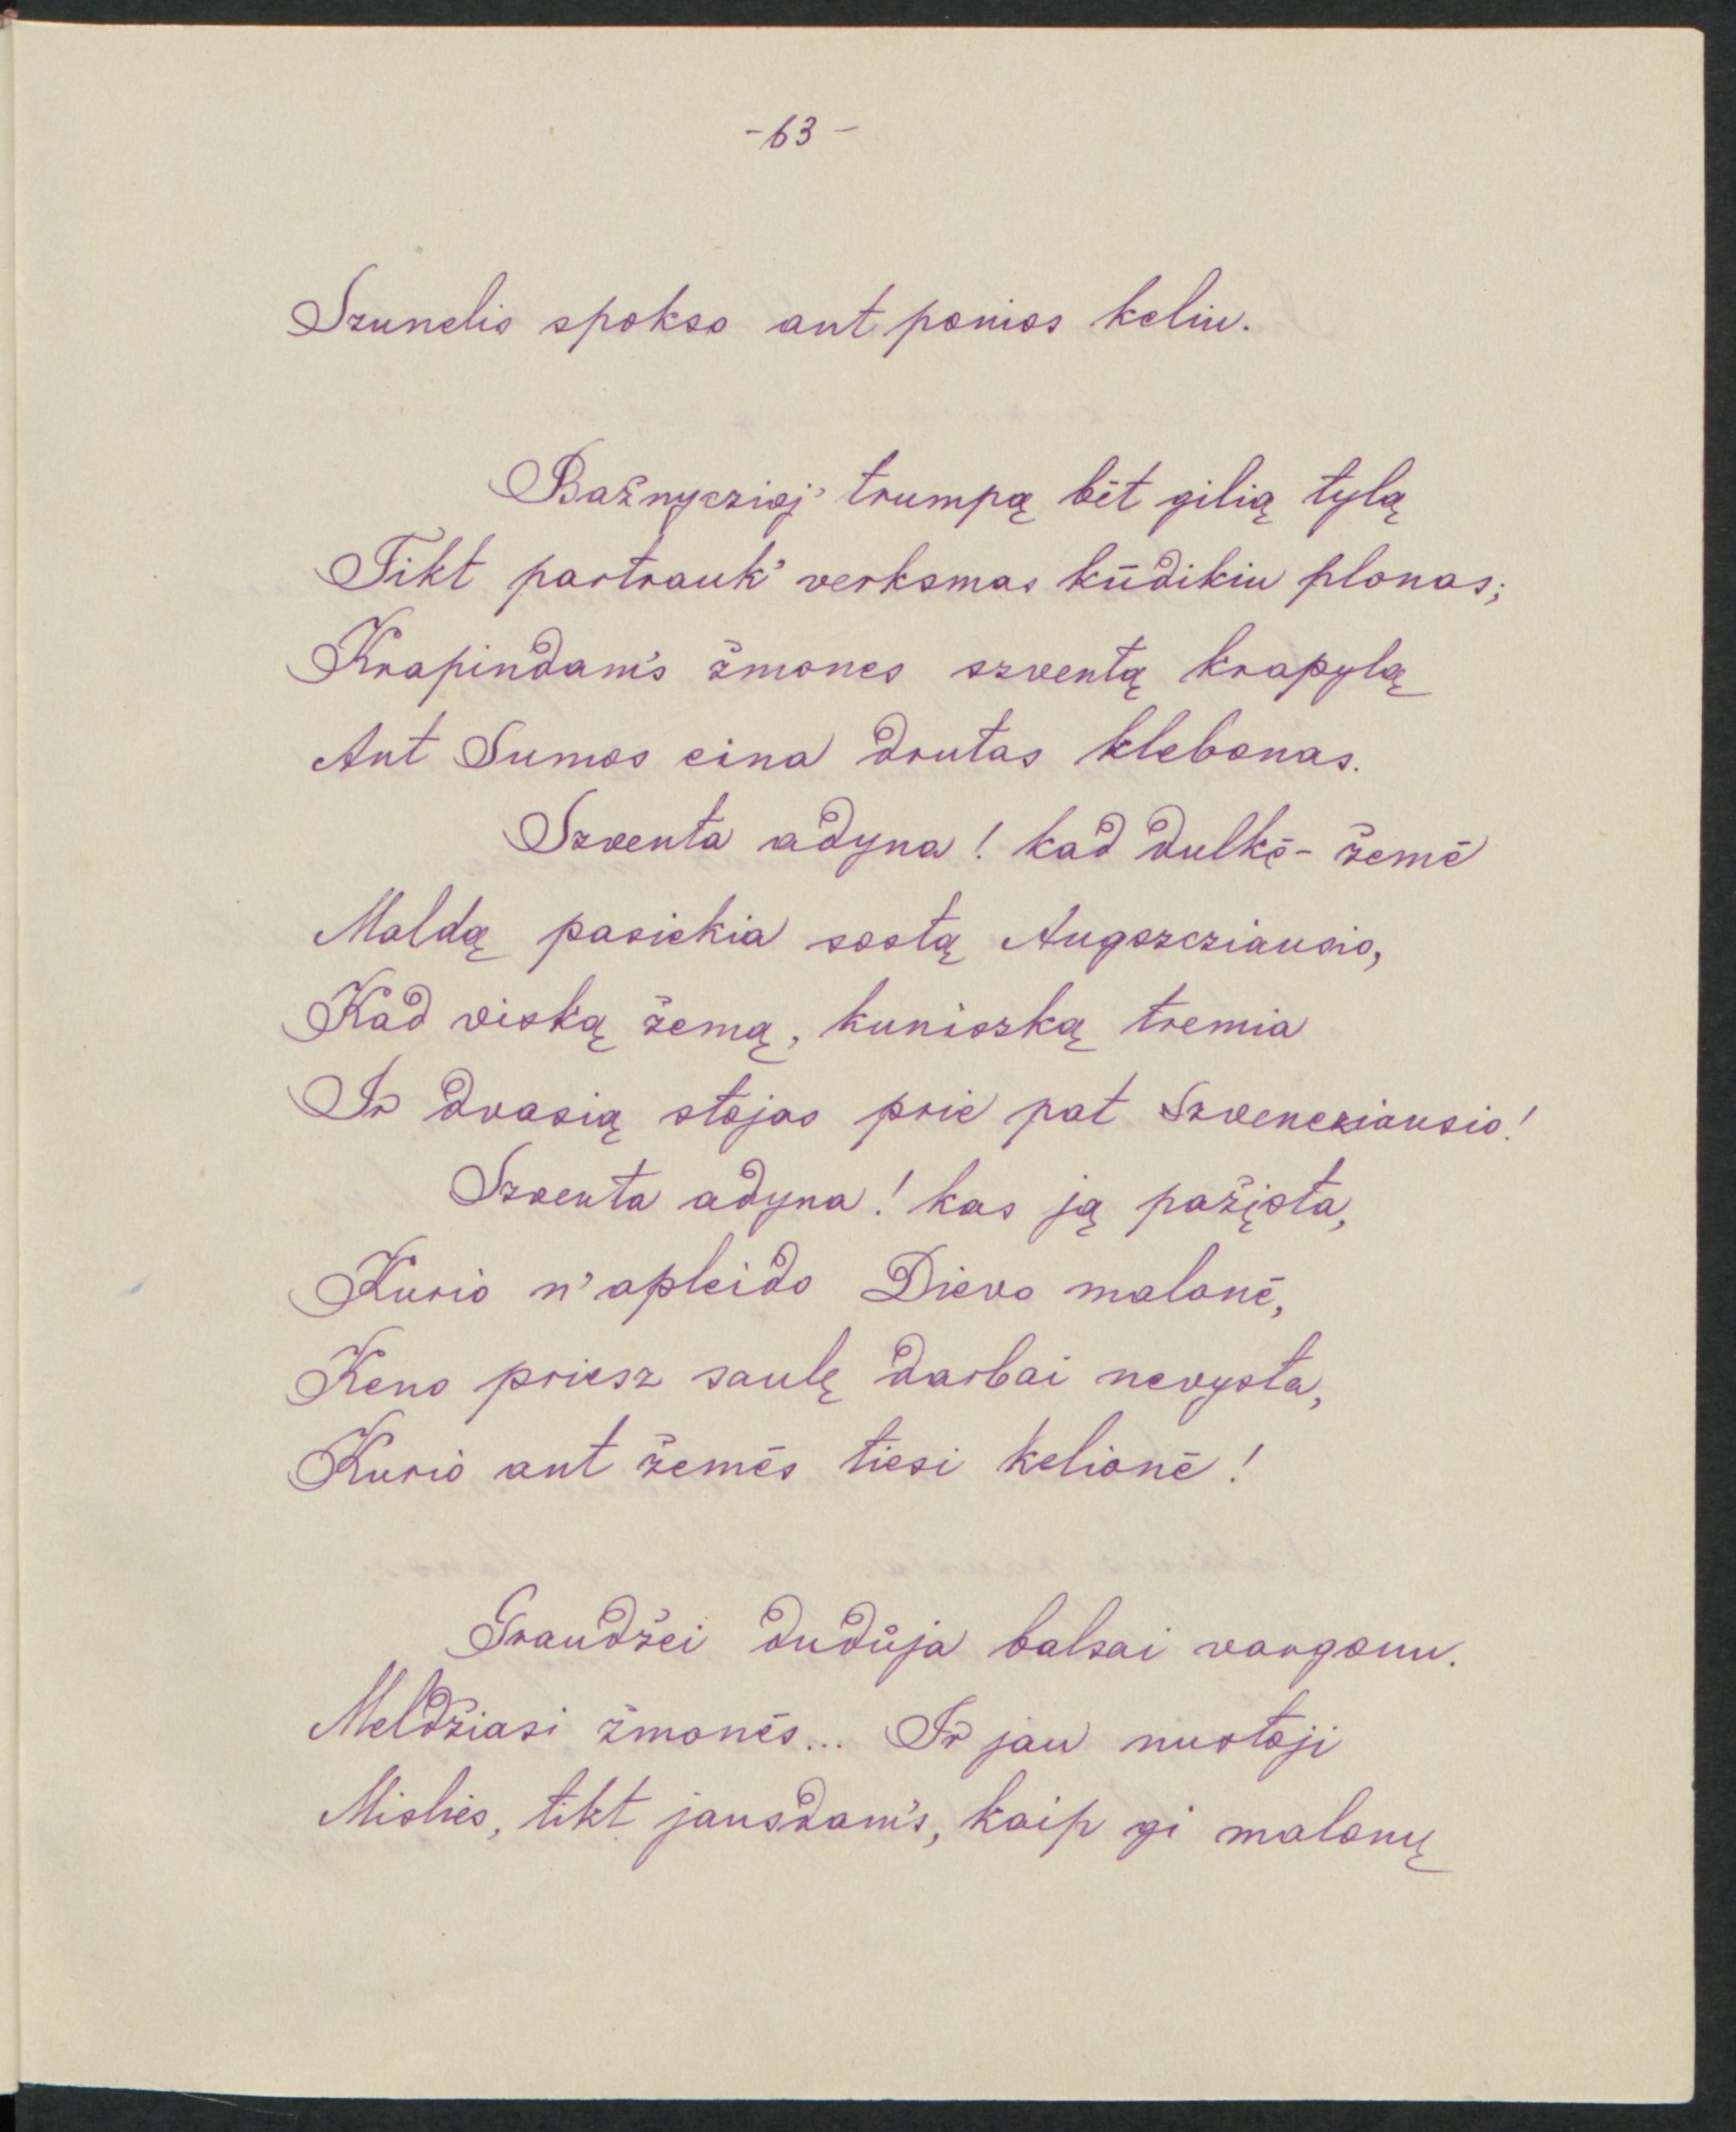 -63-
Szunelis spokso ant ponios keliu.
Bažnyczioj' trumpą bėt gilią tylą
Tikt partrauk' verksmas kūdikiu plonas;
Krapindam's žmones szventą krapylą
Ant Sumos eina drutas klebonas.
Szventa adyna! kad dulkė-žemė
Maldą pasiekia sostą Augszcziausio,
Kad viską žemą, kuniszką tremia
Ir dvasią stojas prie pat Szvencziausio!
Szventa adyna! kas ją pažįsta,
Kurio n'apleido Dievo malonė,
Keno priesz saulę darbai nevysta,
Kurio ant žemės tiesi kelionė!
Graudžei dudůja balsai vargonu.
Meldžiasi žmonės... Ir jau nustoji
Mislies, tikt jausdam's, kaip gi malonų